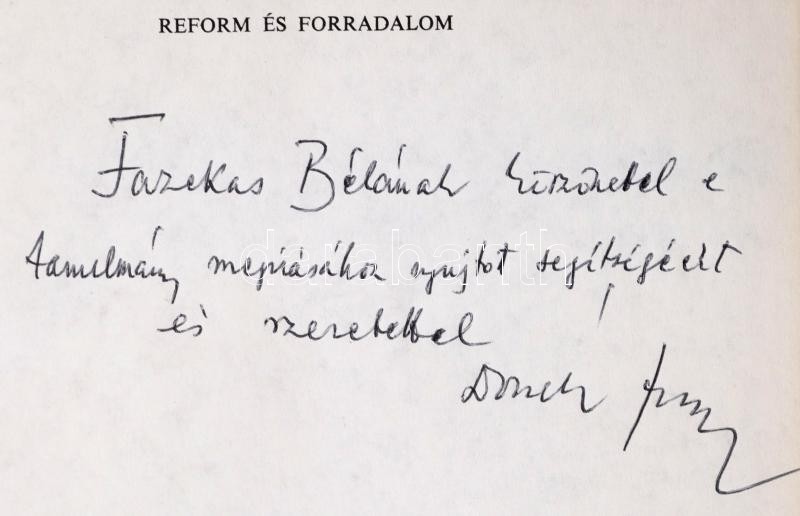 REFORM ÉS FORRADALOM
Fazekas Bélának köszönettel e
tanulmány megírásához nyujtot segítségéért
és szeretettel !
Donáth
darabanth